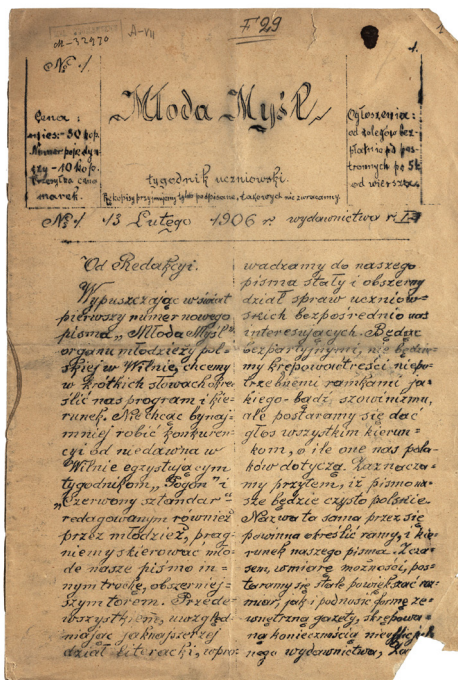 M-32970
A-VII
F29
1.
№ 1.
Młoda Myśl
Cena:
mies:-30 kop.
Numer pojedyn-
czy -10 kop.
marek.
Ogłoszenia:
od kolegów bez-
płatnie od pos-
tronnych po 5k
od wiersza.
tygodnik uczniowski.
Rękopisy przyjmujemy tylko podpisane, takowych nie zwracamy.
№ 1 13 Lutego 1906 r. wydawnictwa r. I.
Od Redakcyi.
Wypuszczając w świat
pierwszy numer nowego
pisma „Młoda Myśl",
organu młodzieży pol-
skiej w Wilnie, chcemy
w krótkich słowach okre-
ślić nasz program i kie-
runek. Nie chcąc bynaj-
mniej robić konkuren-
cyi od niedawna w
Wilnie egzystującym
tygodnikom „Pogoń" i
„Czerwony sztandar"
redagowanym również
przez młodzież, prag-
niemy skierować mło-
de nasze pismo in-
nym trochę, obszerniej-
szym torem. Przede-
wszystkiem, uwzględ-
niając jaknajszerzej
dział literacki, wpro-
wadzamy do naszego
pisma stały i obszerny
dział spraw uczniow-
skich bezpośrednio nas
interesujących. Będąc
bezpartyjnymi, nie będzie-
my krępować treści niepo-
trzebnemi ramkami ja-
kiego-bądź szowinizmu,
ale postaramy się dać
głos wszystkim kierun-
kom, o ile one nas pola-
ków dotyczą. Zaznacza-
my przytem, iż pismo na-
sze będzie czysto polskie.
Nazwa ta sama przez się
powinna określić ramy, i kie-
runek naszego pisma. Z cza-
sem, w miarę możności, pos-
taramy się stale powiększać roz-
miar, jak i podnosić formę ze-
wnętrzną gazety, skrępowa-
ną koniecznością
nego wydawnictwa,